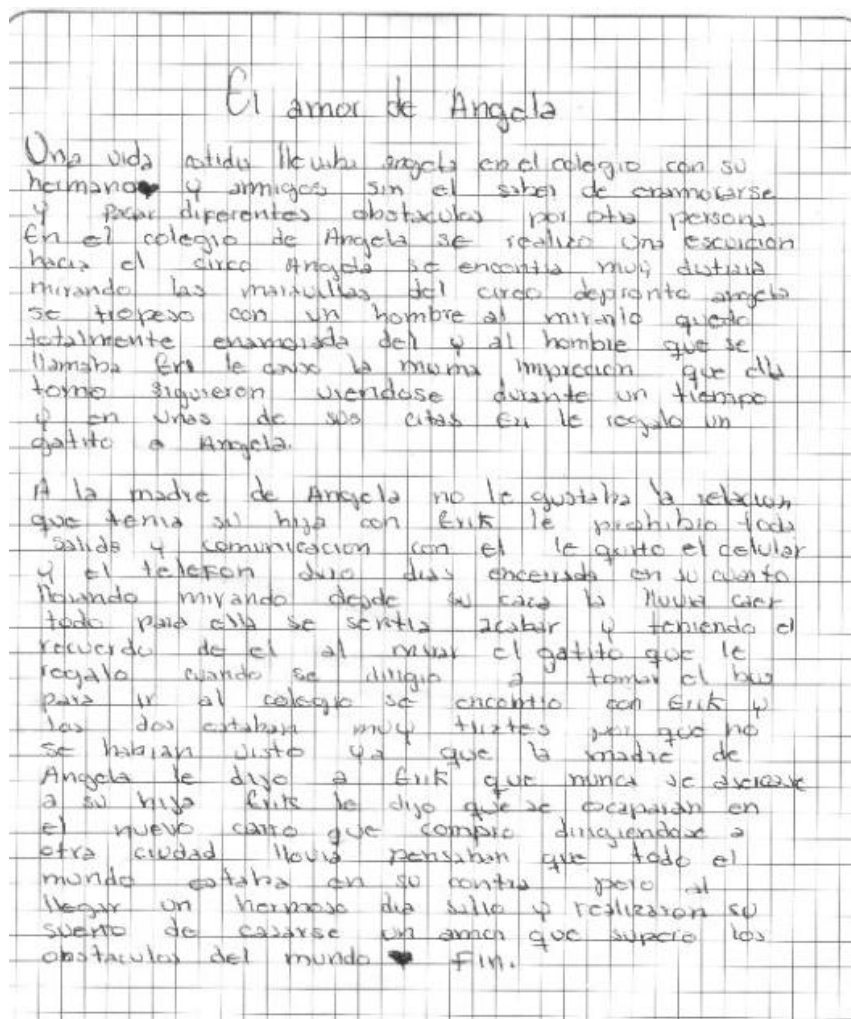 El amor de Angela
Una vida llevaba angela en el colegio con su
hermano y amigos sin el saber de enamorarse
y pasar diferentes obstaculos por otra persona
En el colegio de Angela se realizo una escurcion
hacia el circo Angela se encontra muy
mirando las maravillas del circo depronto angela
se tropeso con un hombre al mirarlo quedo
totalmente enamorada del y al hombre que se
llamaba le la misma imprecion que ella
tomo siguieron viendose durante un tiempo
y en unas de sus citas le regalo un
gatito a Angela.
A la madre de Angela no le gustaba la relacion
que tenia su hija con Erik le prohibio toda
salida y comunicacion con el le quito el celular
y el telefon duro dias encerrada en su cuarto
llorando mirando desde su caca la lluvia caer
todo para ella se sentia acabar y teniendo el
recuerdo de el al mirar el gatito que le
regalo cuando se dirigio a tomar el bus
para ir al colegio se encontro con Erik y
los dos estaban muy por que no
se habian visto ya que la madre de
Angela le dijo a Erik que nunca se
a su hija Erik le dijo que se ecaparan en
el nuevo carro que compro dirigiendose a
otra ciudad llovia pensaban que todo el
mundo estaba en su contra pero al
llegar un hermoso dia salio y realizaron su
sueño de casarse un amor que supero los
obstaculos del mundo Fin.